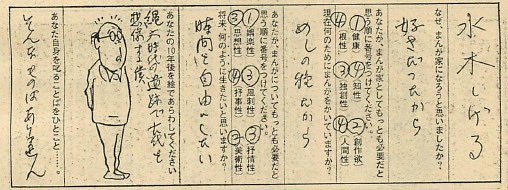 水木しげる
なぜ、まんが家になろうと思いましたか?
好きだったから
あなたが、まんが家としてもっとも必要だと
思う順に番号をつけてください。
①(健康) ④(知性) ②(創作欲)
④(根性) ③(独創性) ④(人間性)
現在何のためにまんがをかいていますか?
めしの為だから
あなたが、まんがについてもっとも必要だと
思う順に番号をつけてください。
①(娯楽性) ③(風刺性) ③(抒情性)
③(思想性) ④(抒事性) ②(美術性)
将来、何のように生きたいと思いますか?
時間を自由にしたい
あなたの10年後を絵であらわしてください
縄文時代の遺跡で古代を
想像する係
あなた自身を叱ることばをひとこと……。
そんなものはありません